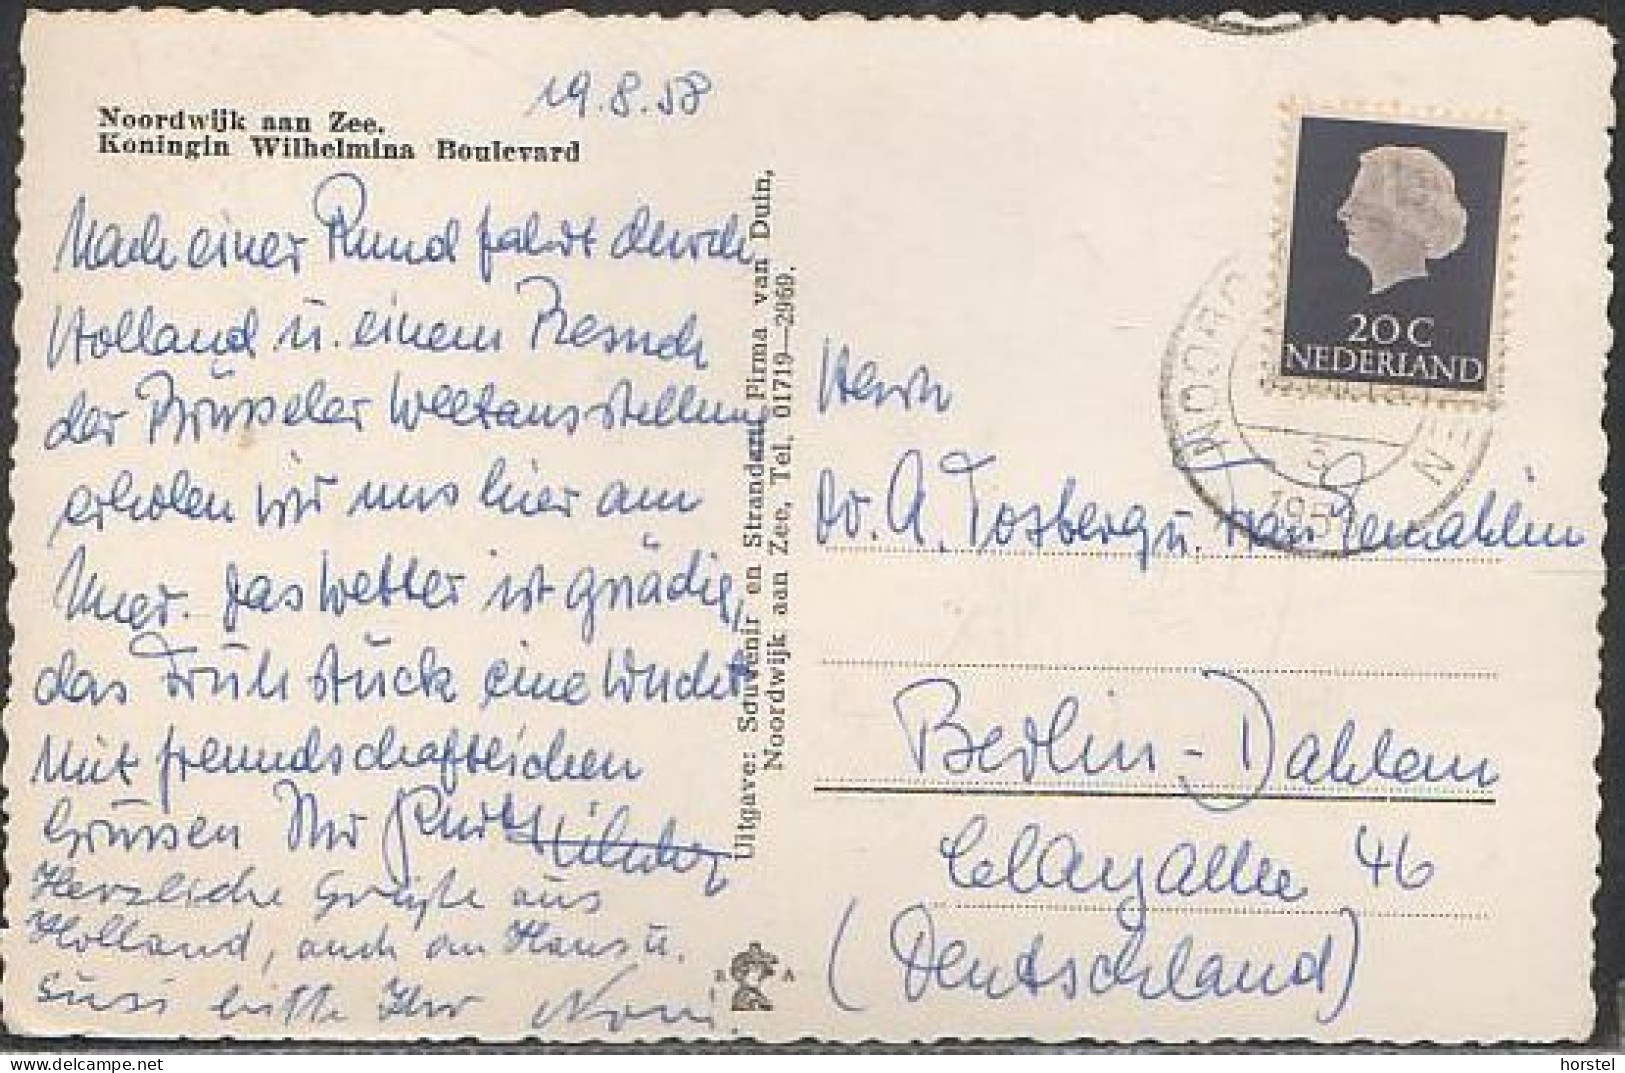 19.8.58
Noordwijk aan Zee.
Koningin Wilhelmina Boulevard
Nach einer Rundfahrt durch
Holland u. einem Besuch
der Brüsseler Weltausstellung
erholen wir uns hier am
Meer. Das Wetter ist gnädig,
das Frühstück eine Wucht
Mit freundschaftlichen
Grüssen Ihr Kurt
Herzliche Grüße aus
Holland, auch an Hans u.
Susi bitte Ihr Noni.
Uitgave: Souvenir en Strandbazar Firma van Duin,
Noordwijk aan Zee, Tel. 01719—2969.
R A
20 C
NEDERLAND
Herrn
Dr. A. Tosberg u. Frau Gemahlin
Berlin-Dahlem
Clayallee 46
(Deutschland)
horstel